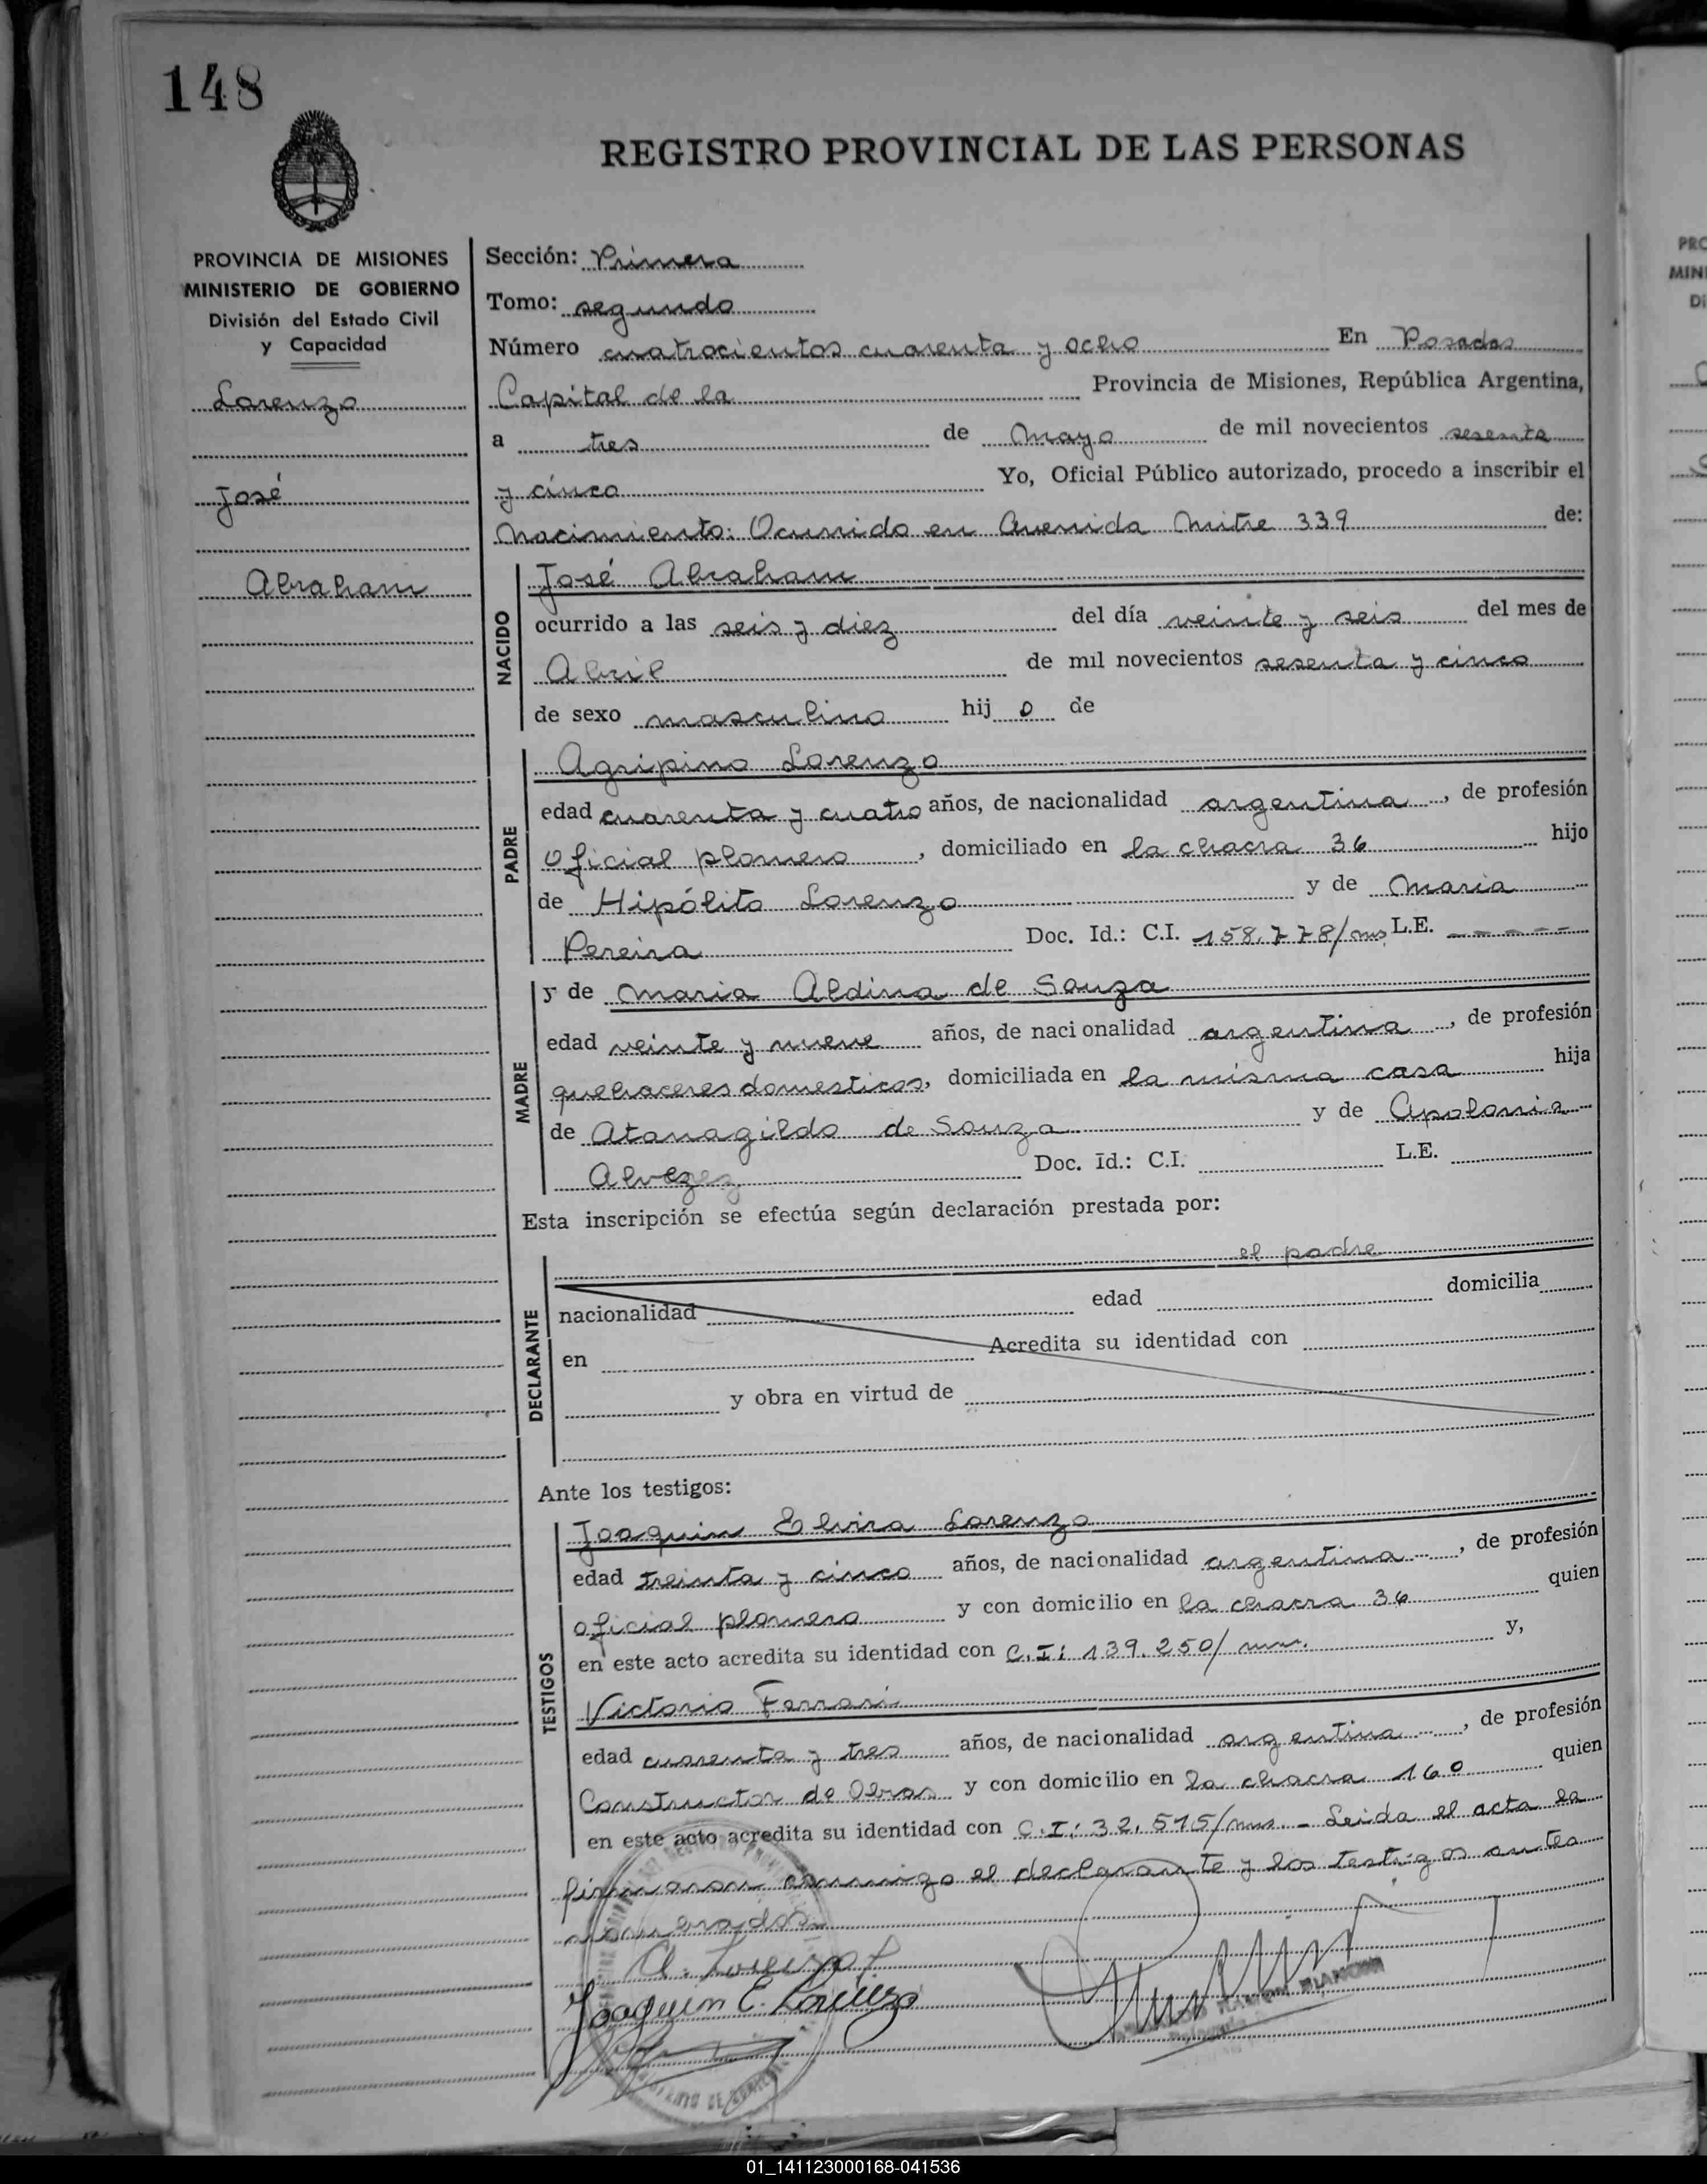 148
REGISTRO PROVINCIAL DE LAS PERSONAS
PROVINCIA DE MISIONES
MINISTERIO DE GOBIERNO
División del Estado Civil
y Capacidad
Lorenzo
José
Abraham
Sección: Primera
Tomo: segundo
Número cuatrocientos cuarenta y ocho En Posadas
Capital de la Provincia de Misiones, República Argentina,
a tres de Mayo de mil novecientos sesenta
y cinco Yo, Oficial Público autorizado, procedo a inscribir el
Nacimiento: Ocurrido en Avenida Mitre 339 de:
NACIDO
José Abraham
ocurrido a las seis y diez del día veinte y seis del mes de
Abril de mil novecientos sesenta y cinco
de sexo masculino hij o de
PADRE
Agripino Lorenzo
edad cuarenta y cuatro años, de nacionalidad argentina, de profesión
Oficial plomero, domiciliado en la chacra 36 hijo
de Hipólito Lorenzo y de Maria
Pereira Doc. Id.: C.I. 158.778/ms L.E. -----
MADRE
y de Maria Aldina de Souza
edad veinte y nueve años, de nacionalidad argentina, de profesión
quehaceres domesticos, domiciliada en la misma casa hija
de Atanagildo de Souza y de Apolonia
Alvez Doc. Id.: C.I. L.E.
Esta inscripción se efectúa según declaración prestada por:
DECLARANTE
el padre
nacionalidad edad domicilia
en Acredita su identidad con
y obra en virtud de
Ante los testigos:
TESTIGOS
Joaquin Elvira Lorenzo
edad treinta y cinco años, de nacionalidad argentina, de profesión
oficial plomero y con domicilio en la chacra 36 quien
en este acto acredita su identidad con C.I: 139.250/ms. y,
Victorio Ferrari
edad cuarenta y tres años, de nacionalidad argentina, de profesión
Constructor de Obras y con domicilio en la chacra 160 quien
en este acto acredita su identidad con C.I: 32.515/ms. - Leida el acta la
firmaron conmigo el declarante y los testigos antes
nombrados
A. Lorenzo
Joaquin E. Lorenzo
01_141123000168-041536